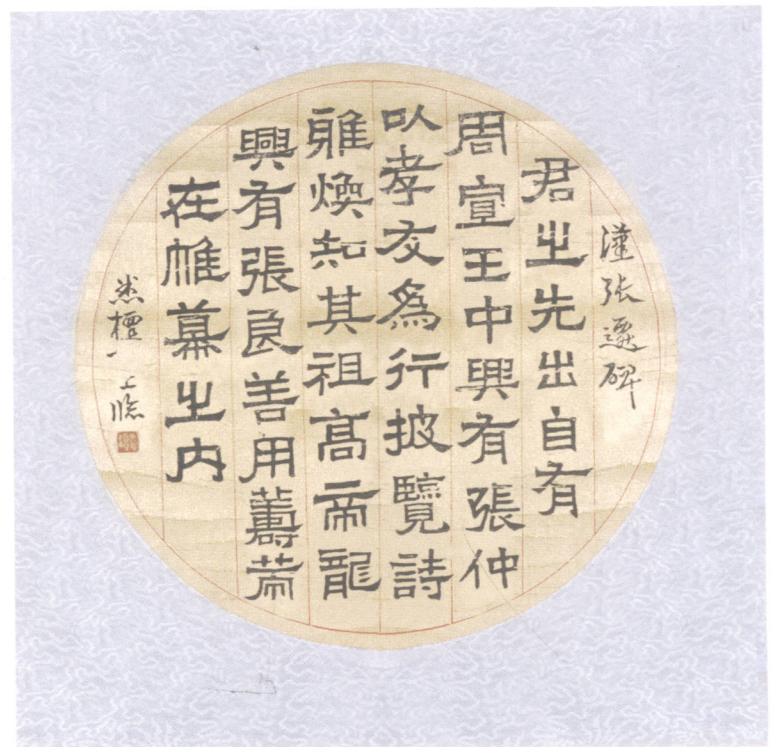 漢張遷碑
君之先出自有
周宣王中興有張仲
以孝友爲行披覽詩
雅煥知其祖高帝龍
興有張良善用籌策
在帷幕之内
檀一上臨